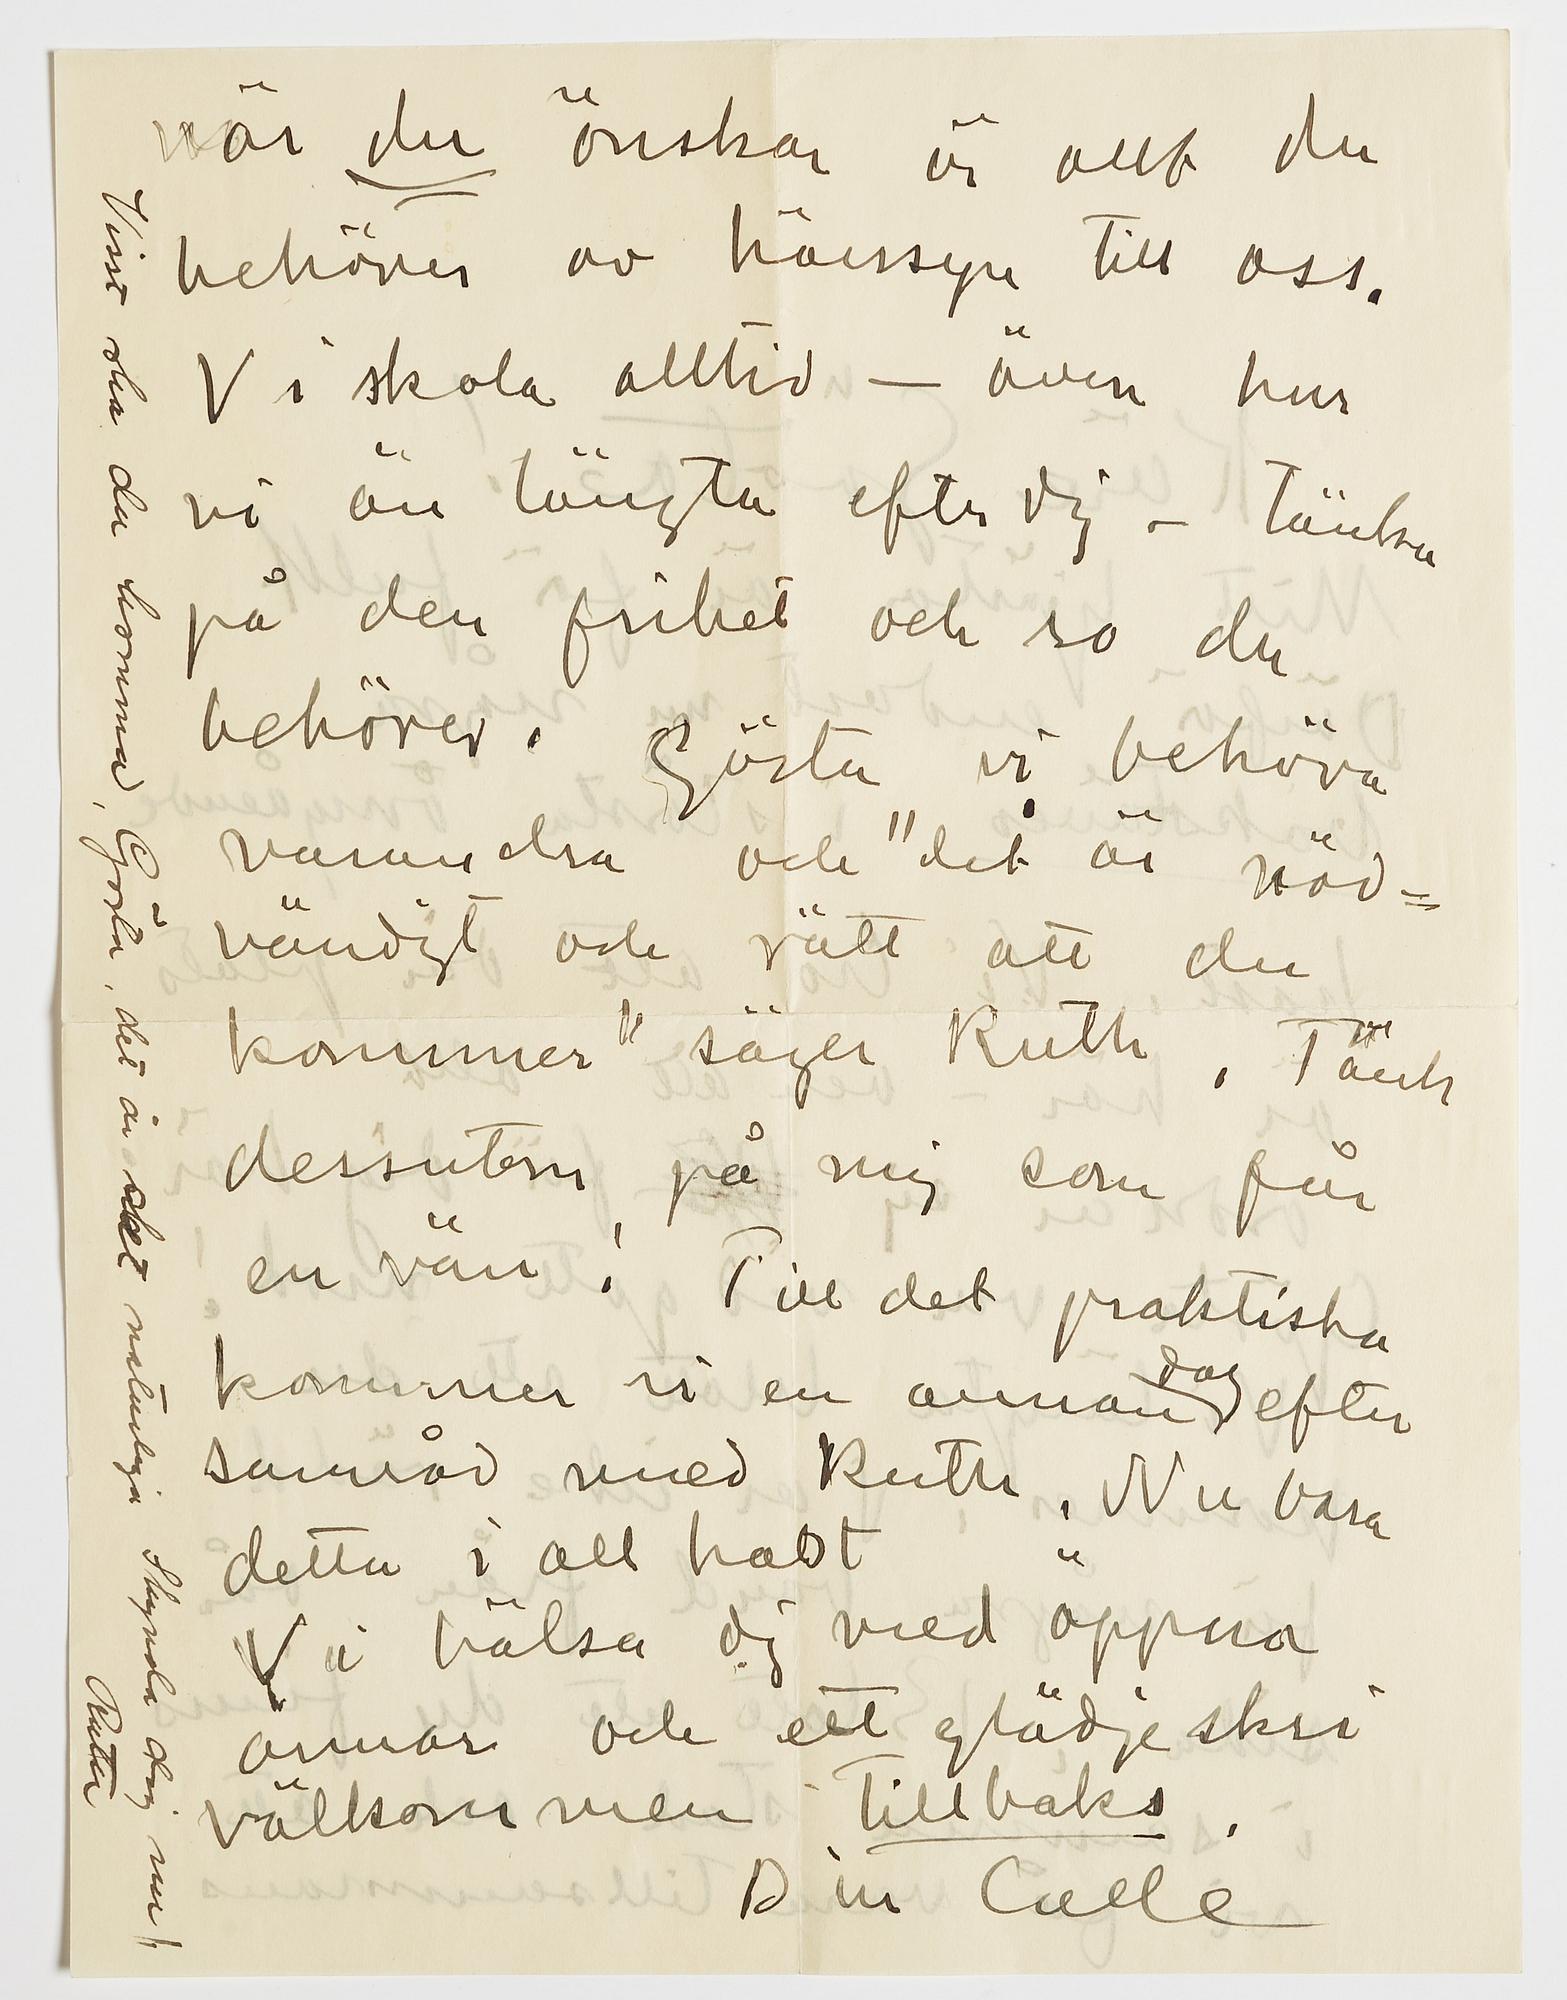 när du önskar är allt du
behöver av hänsyn till oss.
Vi skola alltid – även hur
vi än längta efter dig – tänka
på den frihet och ro du
behöver. Gösta vi behöva
varandra och "det är nöd=
vändigt och rätt att du
kommer" säger Ruth. Tänk
dessutom på mig som får
en vän! Till det praktiska
kommer vi en annan dag efter
samråd med Ruth. Nu bara
detta i all hast
Vi hälsa dig med öppna
armar och ett glädjeskri
välkommen tillbaks.
Din Calle
Visst ska du komma, Gösta, det är det naturliga. Skynda dig nu!
Ruth